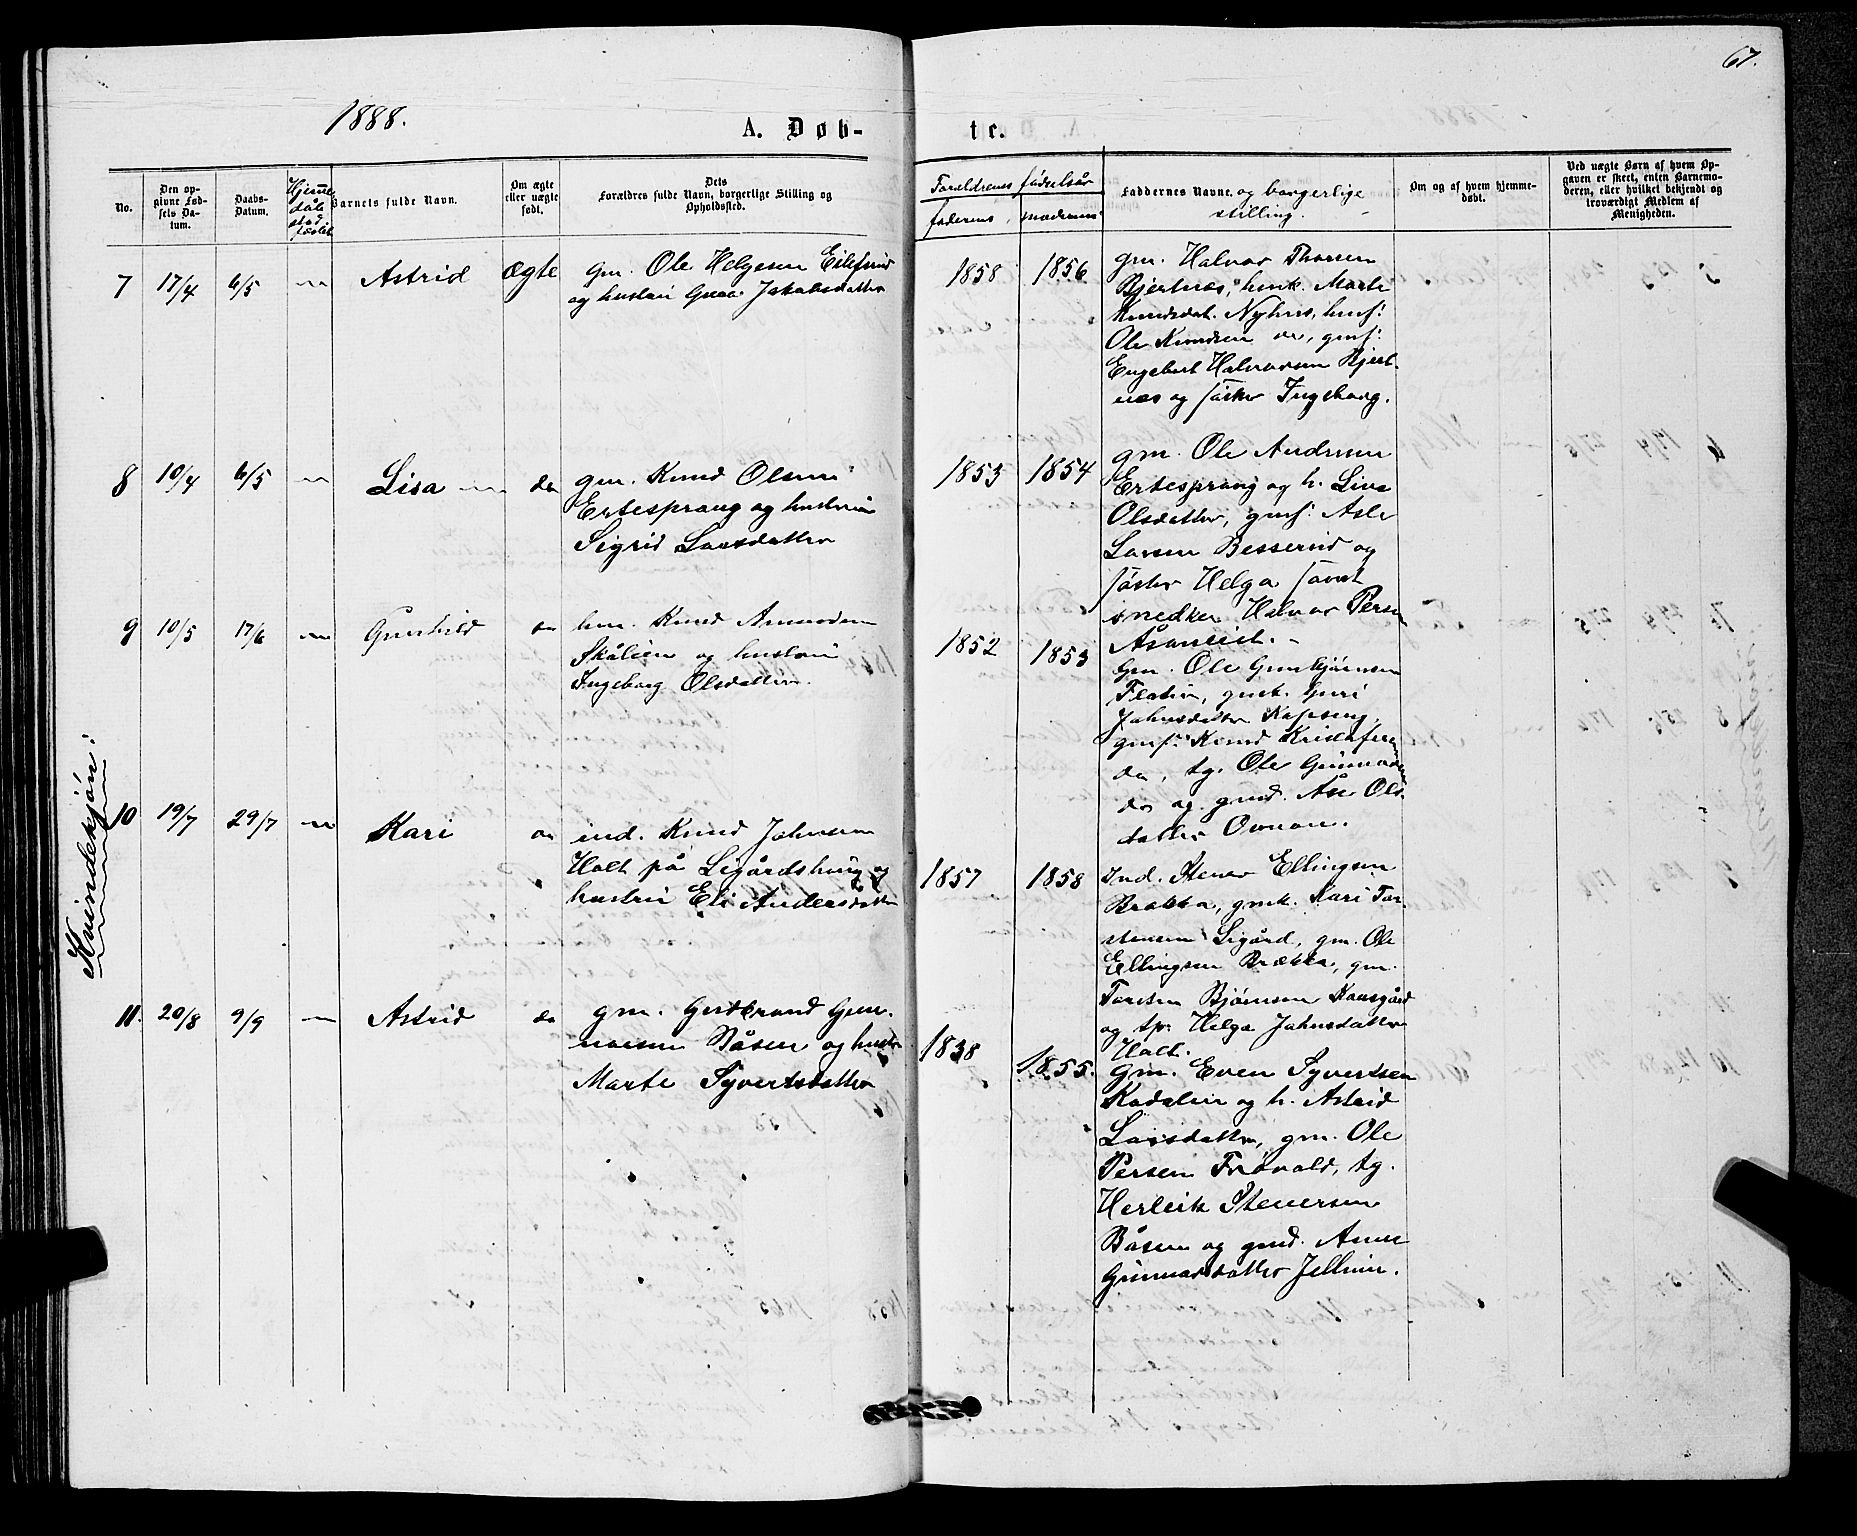 67.
1888.
A. Døb-
te.
No.
Den opgivne Fødsels Datum.
Daabs-Datum.
Hjemmedåb stadfæstet
Barnets fulde Navn.
Om ægte eller uægte født.
Dets Forældres fulde Navn, borgerlige Stilling og Opholdssted.
Forældrenes fødselsår
faderens. moderens
Faddernes Navne. og borgerlige stilling.
Om og af hvem hjemmedøbt.
Ved uægte Børn af hvem Opgaven er skeet, enten Barnemoderen, eller hvilket bekjendt og troværdigt Medlem af Menigheden.
Kvindekjøn:
7 17/4 6/5 Astrid ægte gm. Ole Helgesen Eilefsrud
og hustru Jakobsdatter
1858 1856
gm. Halvor Thorsen
Bjertnæs, Marte
Knudsdat. Nyhus,
Ole Knudsen
Engebret Halvorsen Bjert-
næs og søster Ingeborg.
8 10/4 6/5 Lisa do gm. Knud Olsen
Ertesprang og hustru
Sigrid Larsdatter
1853 1854
gm. Ole Andersen
Ertesprang og h. Liva
Olsdatter, gmf. Asle
Larsen Besserud og
søster Helga samt
snedker Halvor Persen
9 10/5 17/6 Gunhild hm. Knud Amundsen
Skålien og hustru
Ingeborg Olsdatter.
1852 1853
Gm. Ole Gunbjørnsen
Flatin, gmk. Guri
Jahnsdatter Kapseng,
gmf. Knud Kristofersen
do, tg. Ole Gunnarsen
do og gmd. Åse Ols-
datter
10 19/7 29/7 Kari ind. Knud Jahnsen
Holt på Ligårdshaug og
hustru Eli Andersdatter
1857 1858
Ind. Stener Ellingsen
Brækka, gmk. Kari Tor-
stensen Ligård, gm. Ole
Ellingsen Brækka, gm.
Torsten Bjørnsen Kaasgård
og tp. Helga Jahnsdatter
Holt.
11. 20/8 9/9 Astrid do gm. Guldbrand Gun-
narsen Båsen og hustru
Marte Syvertsdatter
1838 1855.
gm. Even Syvertsen
Kadalen og h. Astrid
Larsdatter, gm. Ole
Persen Frøvold, tg.
Herleik Stenersen
Båsen og gmd. Anne
Gunnarsdatter Jellum.